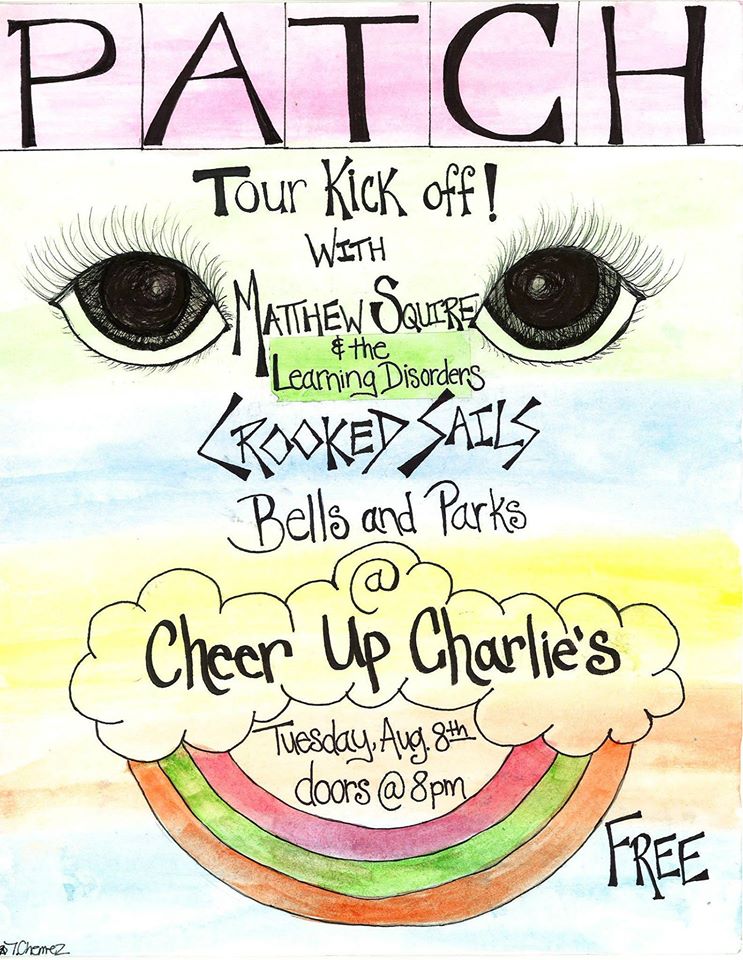 PATCH
Tour Kick off!
WITH
MATTHEW SQUIRE
& the
Learning Disorders
CROOKED SAILS
Bells and Parks
@
Cheer Up Charlie's
Tuesday, Aug. 8th
doors @ 8pm
FREE